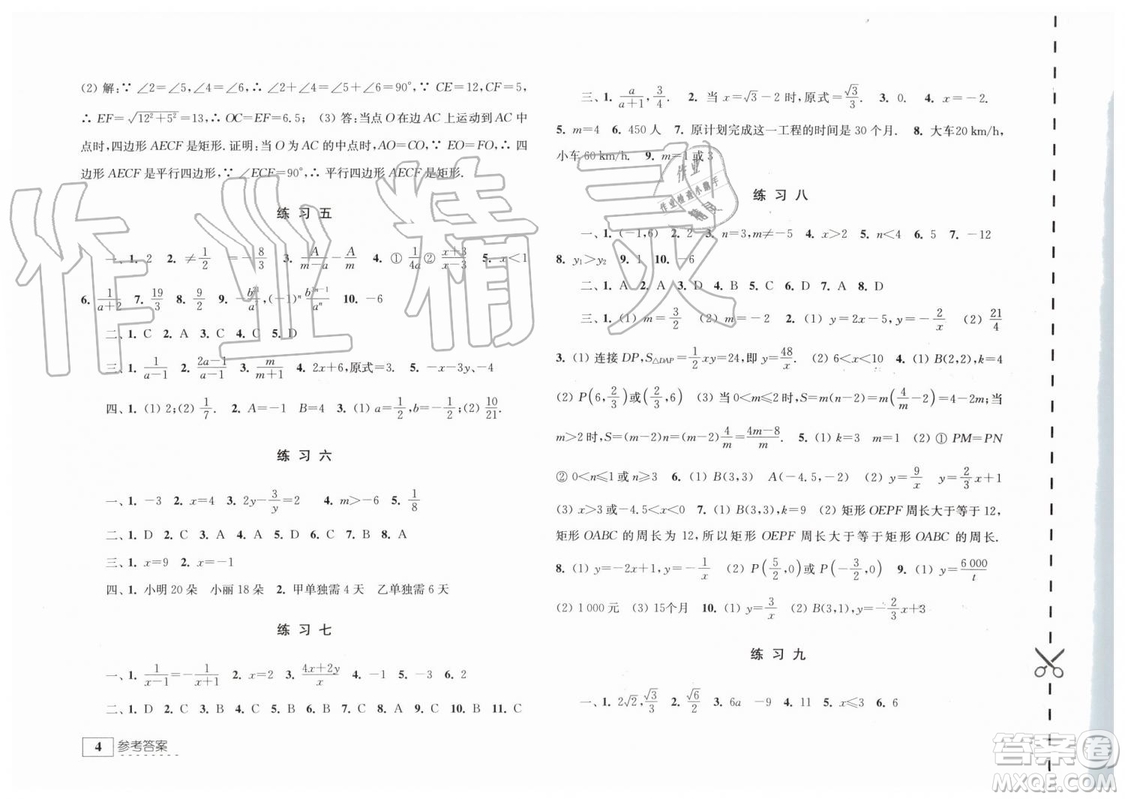 (2) 解:∵ ∠2=∠5,∠4=∠6,∴ ∠2+∠4=∠5+∠6=90°,∵ CE=12,CF=5,
∴ EF=√(12²+5²)=13,∴ OC=EF=6.5; (3) 答:当点 O 在边 AC 上运动到 AC 中
点时,四边形 AECF 是矩形. 证明:当 O 为 AC 的中点时,AO=CO,∵ EO=FO,∴ 四
边形 AECF 是平行四边形,∵ ∠ECF=90°,∴ 平行四边形 AECF 是矩形.
练 习 五
一、1. 2 2. ≠1/2 =-8/3 3. A/(m-a)-A/m 4. ① 1/(4a) ② (x+3)/(x-3) 5. x<1
6. 1/(a+2) 7. 19/3 8. 9/2 9. 10. -6
二、1. C 2. A 3. C 4. C 5. D
三、1. 1/(a-1) 2. (2a-1)/(a-1) 3. m/(m+1) 4. 2x+6,原式=6 5. -4x-3y、-4
四、1. (1) 2;(2) 1/7. 2. A=-1 B=4 3. (1) a=1/2,b=-1/2; (2) 10/21.
练 习 六
一、1. -3 2. x=4 3. 2y-3/y=2 4. m>-6 5. 1/8
二、1. D 2. C 3. D 4. C 5. D 6. B 7. B 8. A
三、1. x=9 2. x=-1
四、1. 小明 20 朵 小丽 18 朵 2. 甲单独需 4 天 乙单独需 6 天
练 习 七
一、1. 1/(x-1) =-1/(x-1) 2. x=2 3. (4x+2y)/x 4. 2 5. -4 6. 2
二、1. D 2. D 3. C 4. A 5. C 6. D 7. B 8. A 9. B 10. B 11. B 12. C
4 参考答案
三、1. a/(a+1),3/4. 2. 当 x=√3-2 时,原式=√3/3. 3. 0. 4. x=-2.
5. m=4 6. 450 人 7. 原计划完成这一工程的时间是 30 个月. 8. 大车20 km/h,
小车 60 km/h. 9. m=1 或 3
练 习 八
一、1. (-1,6) 2. 2 -3 3. -12 4. m≠-5 4. x>2 5. n<4 6. 5 7. -12
8. y₁>y₂ 9. 1 10. -6
二、1. A 2. A 3. D 4. C 5. D 6. D 7. A 8. D
三、1. (1) m=3/2 (2) m=-2 2. (1) y=2x-5,y=-2/x (2) 21/4
3. (1) 连接 DP,S△DAP=1/2xy=24,即 y=48/x. (2) 6<x<10 4. (1) B(2,2),k=4
(2) P(6,2/3)或(2/3,6) (3) 当 0<m≤2 时,S=m(n-2)=m(4/m-2)=4-2m;当
m>2 时,S=(m-2)n=(m-2)4/m=(4m-8)/m. 5. (1) k=3 m=1 (2) ① PM=PN
② 0<n≤1 或 n≥3 6. (1) B(3,3) A(-4.5,-2) (2) y=9/x y=2/3x+1
(3) x>3 或-4.5<x<0 7. (1) B(3,3),k=9 (2) 矩形 OEPF 周长大于等于 12,
矩形 OABC 的周长为 12,所以矩形 OEPF 周长大于等于矩形 OABC 的周长.
8. (1) y=-2x+1,y=-1/x (2) P(5/2,0)或P(3/2,0) 9. (1) y=6 000/t
(2) 1 000 元 (3) 15个月 10. (1) y=3/x (2) B(3,1),y=-2/3x+3
练 习 九
一、1. 2√2,√3/3 2. √6/2 3. 6a -9 4. 11 5. x≤3 6. 9
作业精灵
答案圈
MXQE.COM